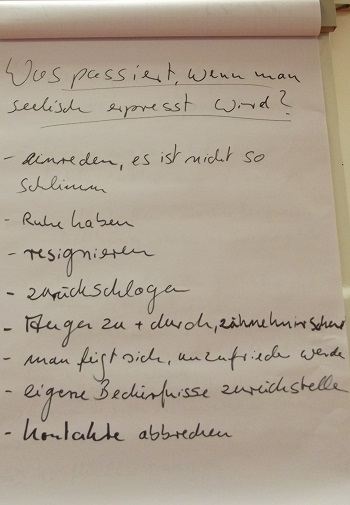 Was passiert, wenn man
seelisch erpresst wird?
- einreden, es ist nicht so
schlimm
- Ruhe haben
- resignieren
- zurückschlagen
- Augen zu + durch, zähneknirschend
- man fügt sich, unzufrieden werde
- eigene Bedürfnisse zurückstelle
- Kontakte abbrechen